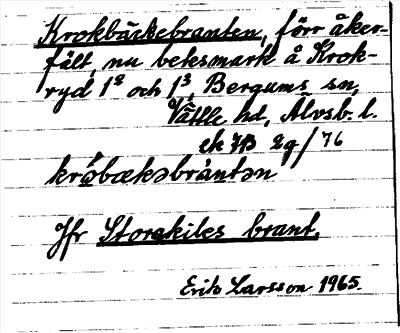 Krokbäckebranten, förr åker-
fält, nu betesmark å Krok-
ryd 1² och 1³, Bergums sn,
Vättle hd, Älvsb. l.
ek 7B 2g/76
krǫ́bækəbràntən
Jfr Storekiles brant.
Erik Larsson 1965.